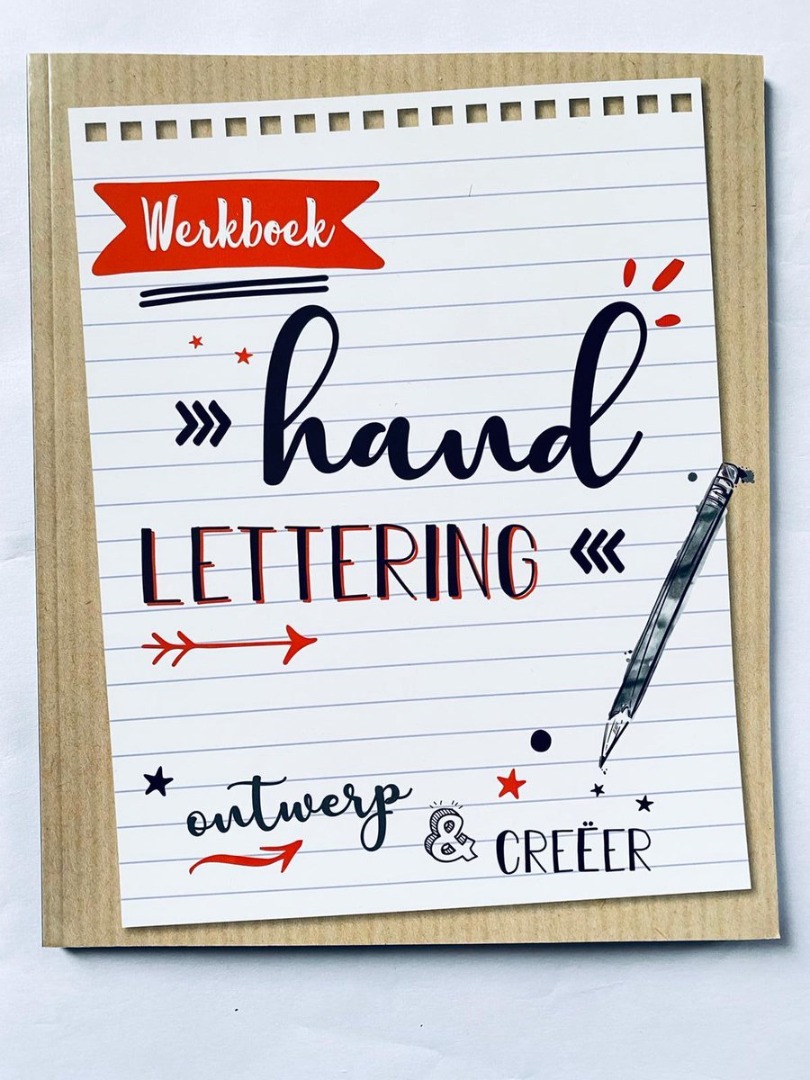 Werkboek
hand
LETTERING
ontwerp
& CREËER